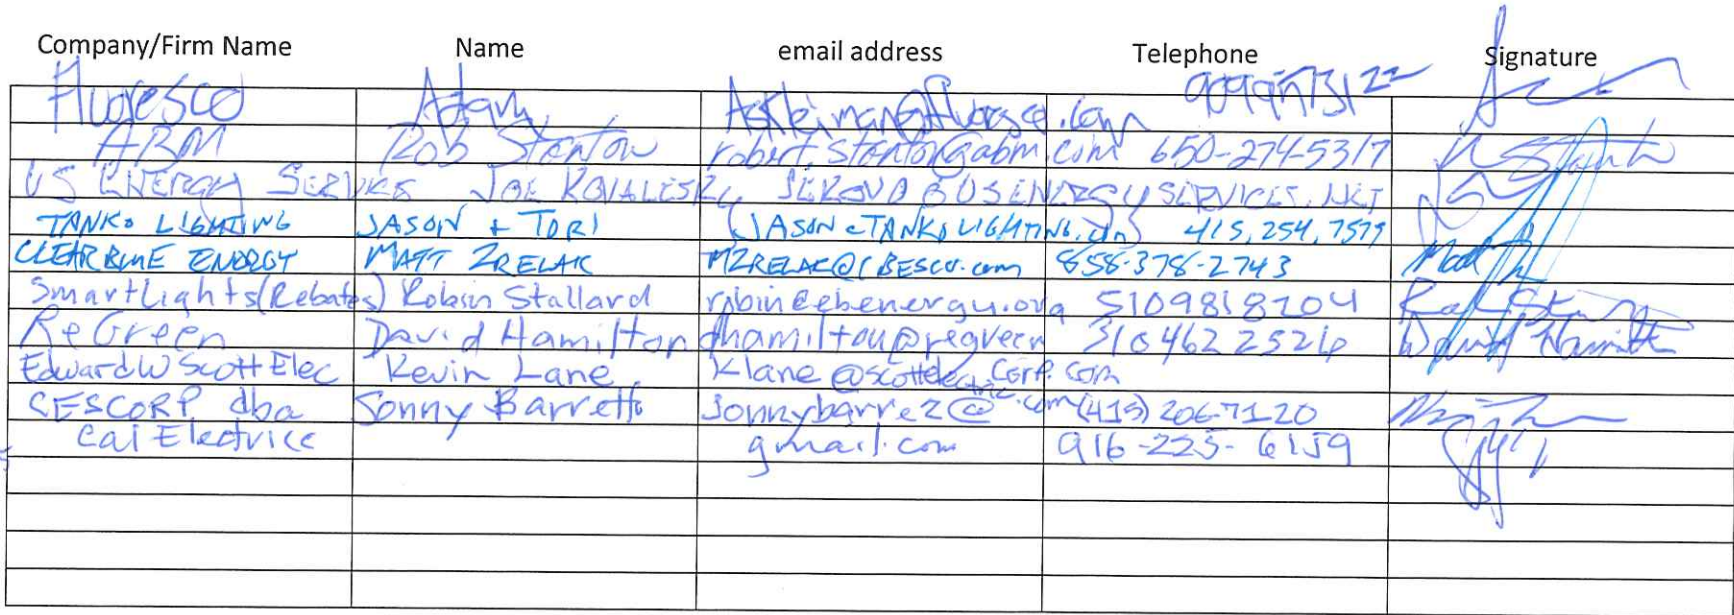 Company/Firm Name Name email address Telephone Signature
Fluoresco Adam
ABM Rob Stanton robert.stanton@abm.com 650-274-5317
US ENERGY SERVICES JOE KOVALESKY
TANKO LIGHTING JASON + TORI JASON@TANKOLIGHTING.com 415.254.7579
CLEAR BLUE ENERGY MATT ZRELAK MZRELAK@CBESCO.com 858-378-2743
SmartLights (Rebates) Robin Stallard robin@ebenergy.org 5109818204
ReGreen David Hamilton dhamilton@regreen 310 462 2526
Edward W Scott Elec Kevin Lane Klane@scottelectriccorp.com
CESCORP dba Sonny Barrett sonnybarre2@ (415) 206-7120
Cal Electrice gmail.com 916-225-6159